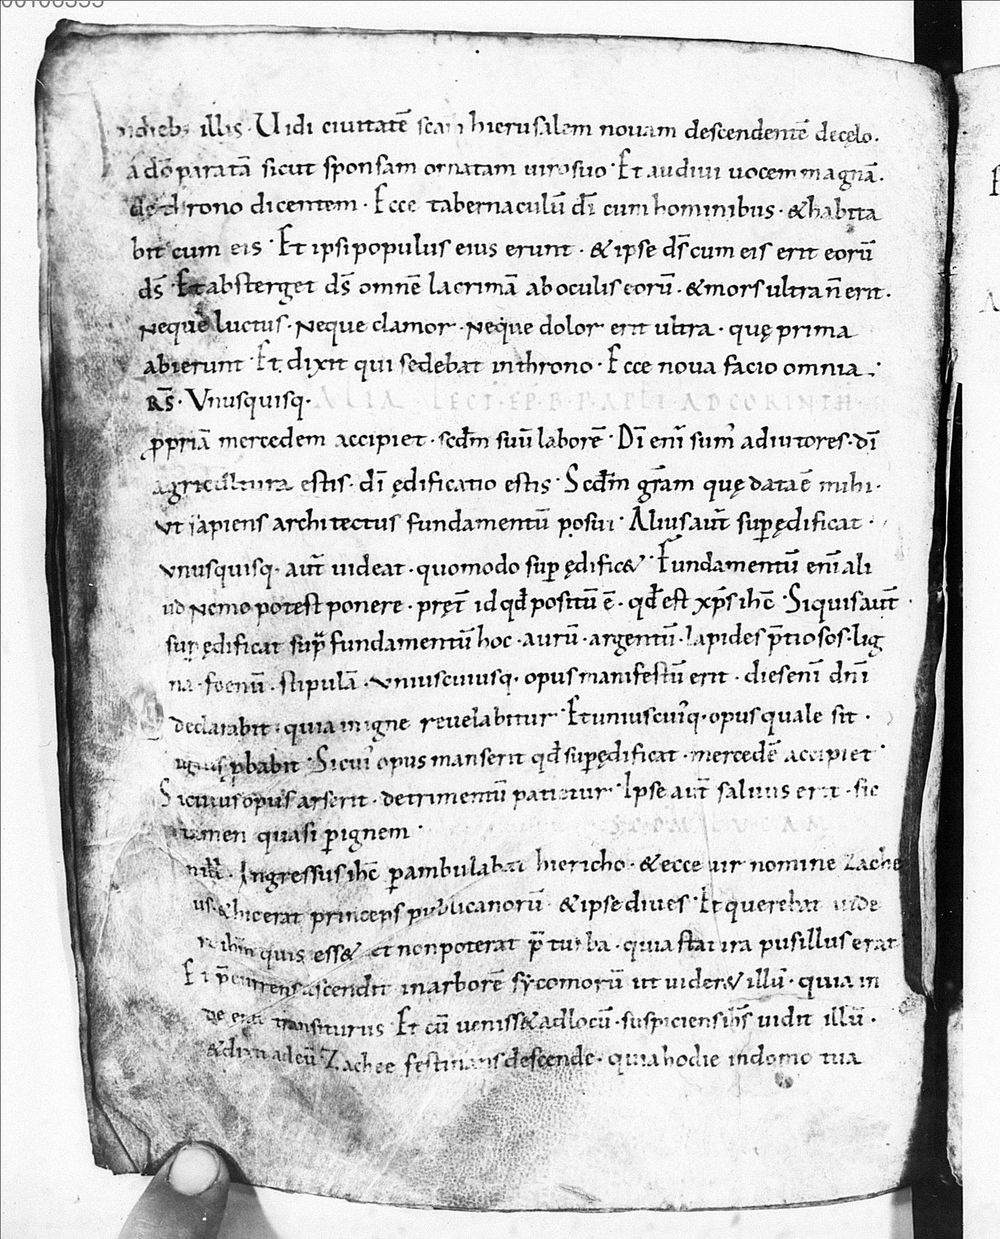 00100333
In dieb; illis · Uidi ciuitatē scam hierusalem nouam descendentē decęlo.
a dō paratā sicut sponsam ornatam uirosuo · Et audiui uocem magnā.
de throno dicentem · Ecce tabernaculū dī cum hominibus · & habita
bit cum eis · Et ipsi populus eius erunt · & ipse ds̄ cum eis erit eorū
ds̄ · Et absterget ds̄ omnē lacrimā ab oculis eorū · & mors ultra n̄ erit.
Neque luctus · Neque clamor · Neque dolor erit ultra · quę prima
abierunt · Et dixit qui sedebat inthrono · Ecce noua facio omnia.
RS̄ · Vnusquisq· ALIA LECT · EP · B · P · APLI · AD CORINTH ·
ꝓpriā mercedem accipiet · scdm̄ suū laborē · Dī enī sum᷒ adiutores · dī
agricultura estis · dī ędificatio estis · Scdm̄ grām quę data ē mihi ·
ut sapiens architectus fundamentū posui · Alius aut̄ suꝑędificat ·
vnusquisq· aut̄ uideat · quomodo suꝑ ędific& · Fundamentū enī ali
ud Nemo potest ponere · pręt̄ id qd̄ positū ē · qd̄ est xp̄s ih̄c · Siquis aut̄
suꝑ ędificat sup̄ fundamentū hoc · aurū · argentū · lapides p̄tiosos · lig
na · foenū · stipulā · vniuscuiusq· opus manifestū erit · dies enī dn̄i
declarabit · quia in igne reuelabitur · Et uniuscui᷒q· opus quale sit ·
ignis ꝓbabit · Sicui᷒ opus manserit qd̄ suꝑędificat · mercedē accipiet ·
Si cuius opus arserit · detrimentū patietur · Ipse aut̄ saluus erit · sic
tamen quasi ꝑ ignem · SCDM LUCAM
In ill̄ · Ingressus ih̄c ꝑambulabat hiericho · & ecce uir nomine Zache
us · & hic erat princeps publicanorū · & ipse diues · Et querebat uide
re ih̄m quis ess& et non poterat p̄ turba · quia statura pusillus erat
Et p̄currens ascendit inarborē sycomorū ut uider& illū · quia in
de erat transiturus Et cū ueniss& ad locū · suspiciens ih̄s uidit illū ·
& dixit ad eū Zachee festinans descende · quia hodie indomo tua